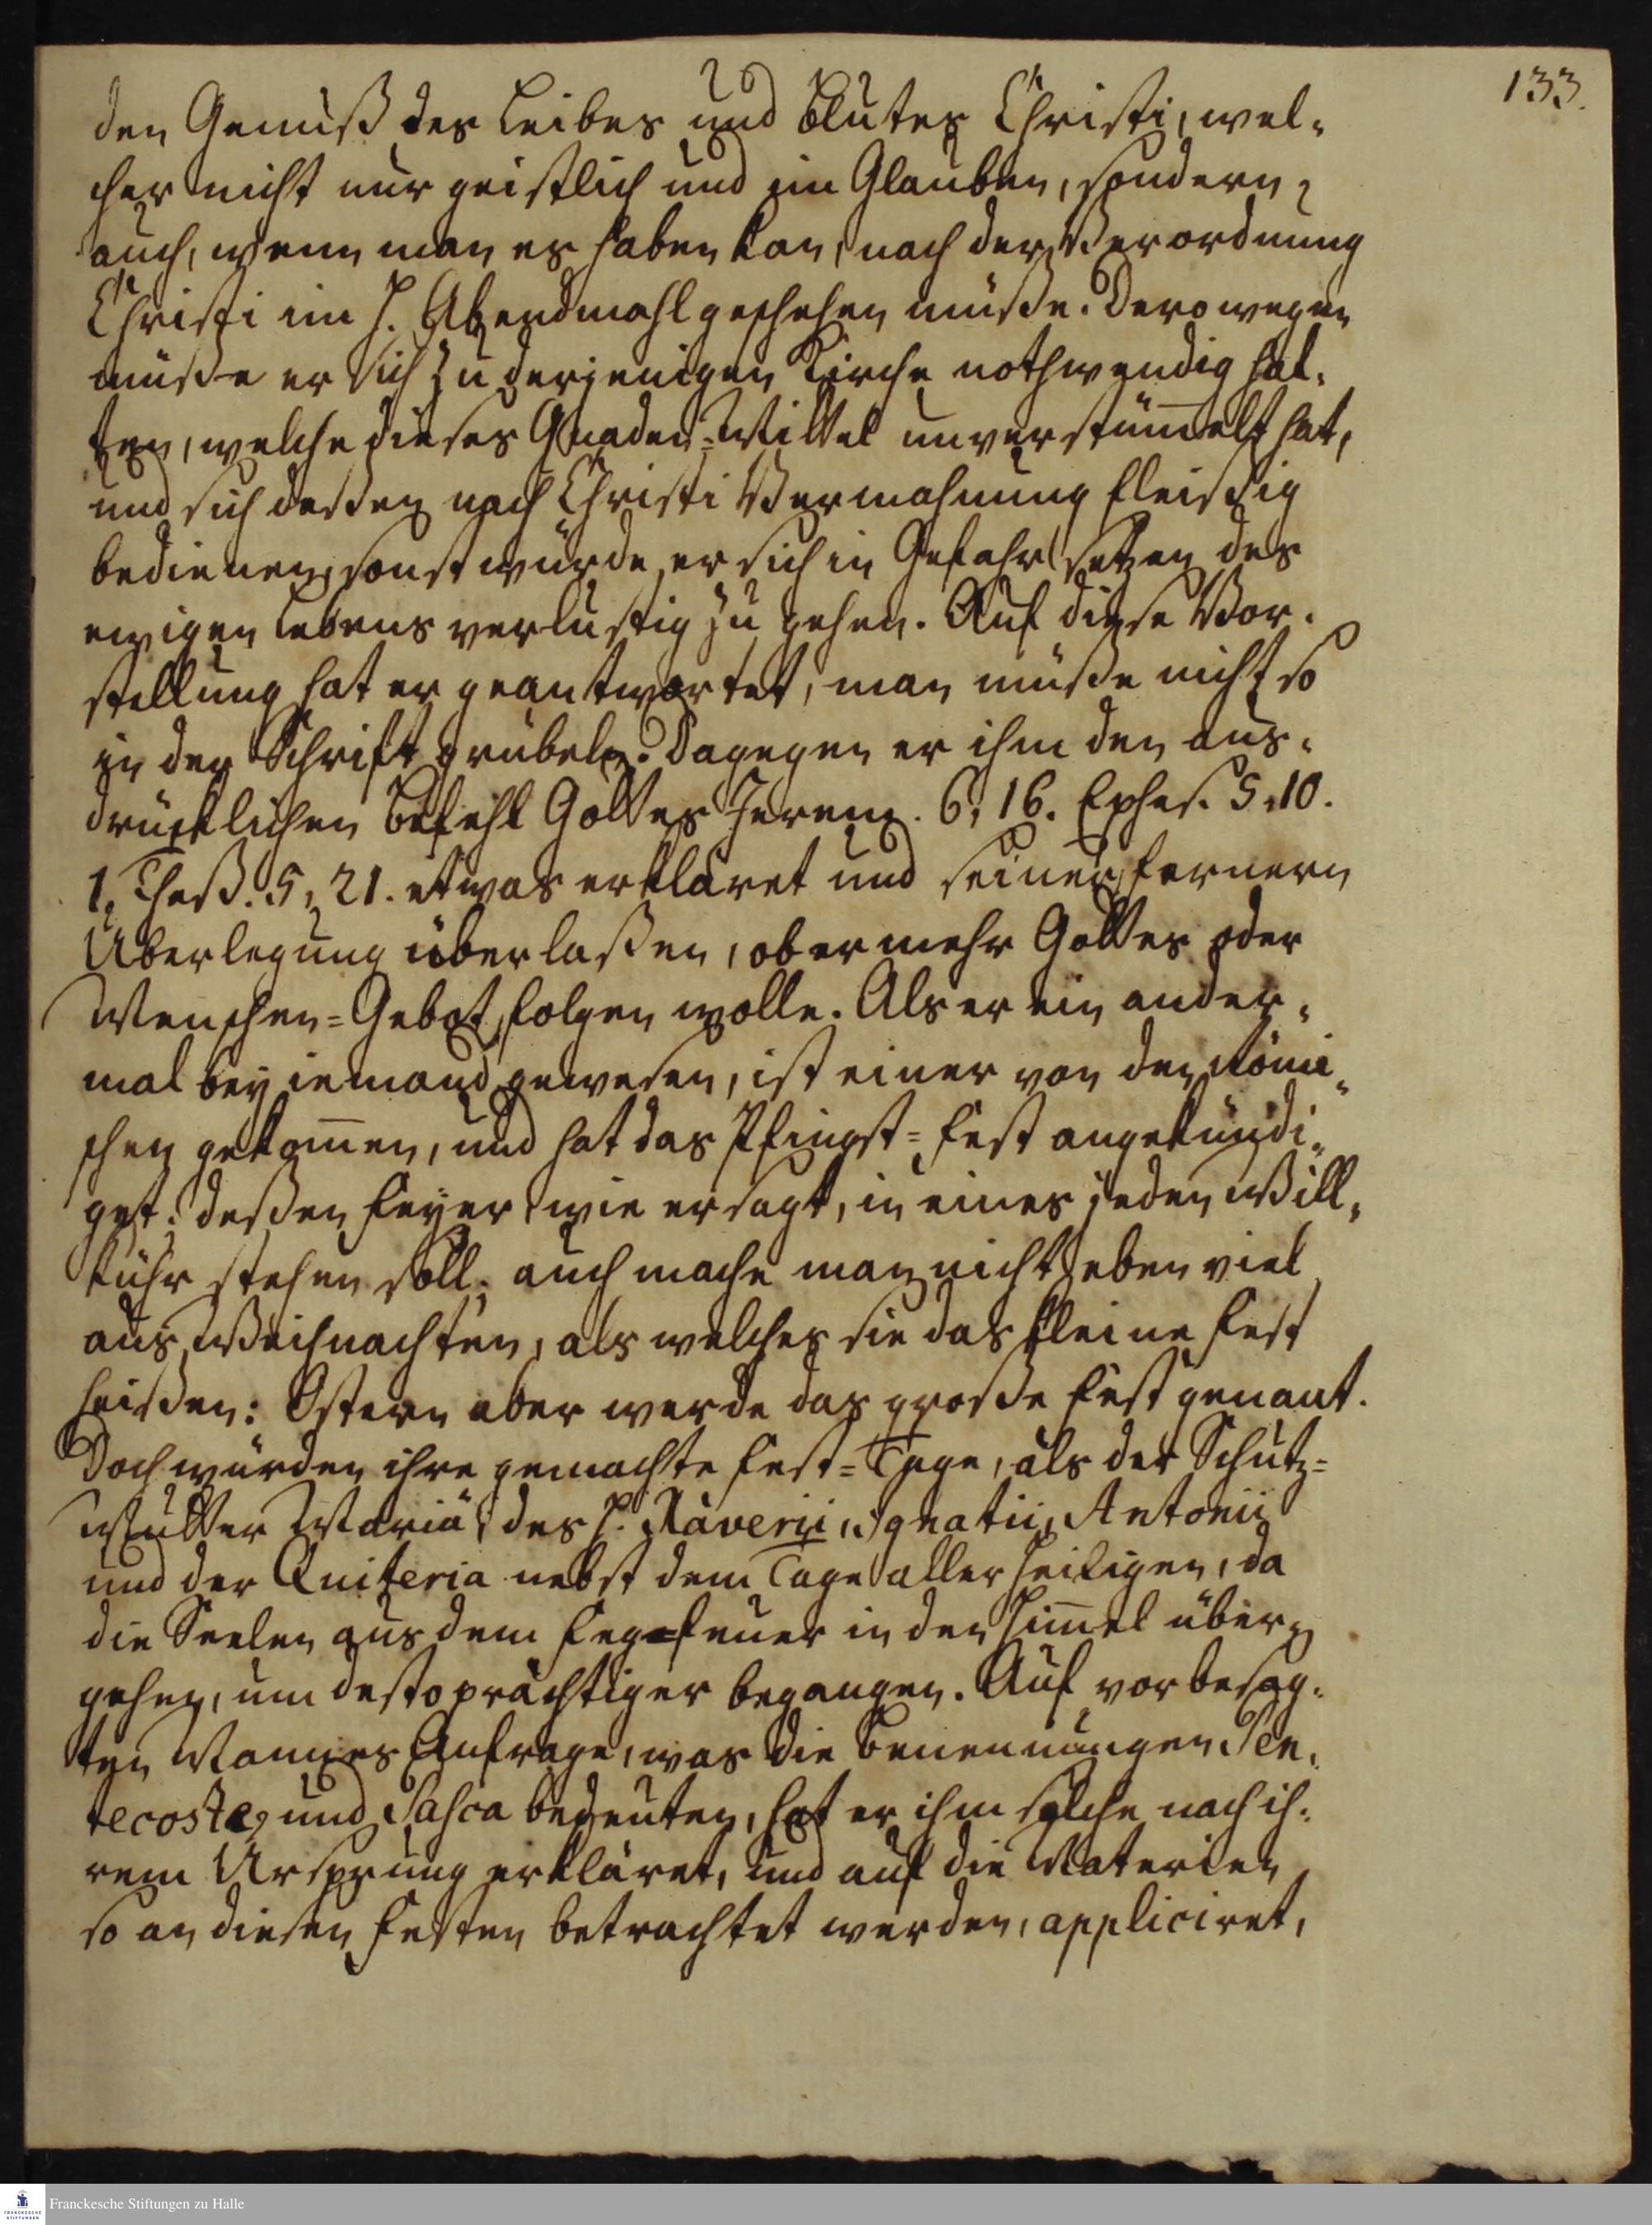 133.
den Genuß des Leibes und Blutes Christi, wel-
cher nicht nur geistlich und im Glauben, sondern
auch, wenn man es haben kan, nach der Verordnung
Christi im H. Abendmahl geschehen müße. Derowegen
müße er sich zu derjenigen Kirche nothwendig hal-
ten, welche dieses Gnaden-Mittel unverstüm̅elt hat,
und sich deßen nach Christi Vermahnung fleißig
bedienen, sonst würde er sich in Gefahr setzen des
ewigen Lebens verlustig zu gehen. Auf diese Vor-
stellung hat er geantwortet, man müße nicht so
in der Schrift grübeln. Dagegen er ihm den aus-
drücklichen Befehl Gottes Jerem. 6, 16. Ephes. 5, 10.
1. Theß. 5, 21. etwas erkläret und seiner fernern
Uberlegung überlaßen, ob er mehr Gottes oder
Menschen-Gebot folgen wolle. Als er ein ander-
mal bey iemand gewesen, ist einer von den Römi-
schen gekom̅en, und hat das Pfingst-Fest angekündi-
get: deßen Feyer, wie er sagt, in eines jeden Will-
kühr stehen soll; auch mache man nicht eben viel
aus Weihnachten, als welches sie das kleine Fest
heißen: Ostern aber werde das große Fest genant.
Doch würden ihre gemachte Fest-Tage, als der Schutz-
Mutter Mariä, des H. Xaverii, Ignatii, Antonii
und der Quiteria nebst dem Tage aller Heiligen, da
die Seelen aus dem Feg-feuer in den Him̅el über-
gehen, um desto prächtiger begangen. Auf vorbesag-
ten Mannes Anfrage, was die Benennungen Pen-
tecoste, und Pasca bedeuten, hat er ihm solche nach ih-
rem Ursprung erkläret, und auf die Materien
so an diesen Festen betrachtet werden, appliciret,
Franckesche Stiftungen zu Halle